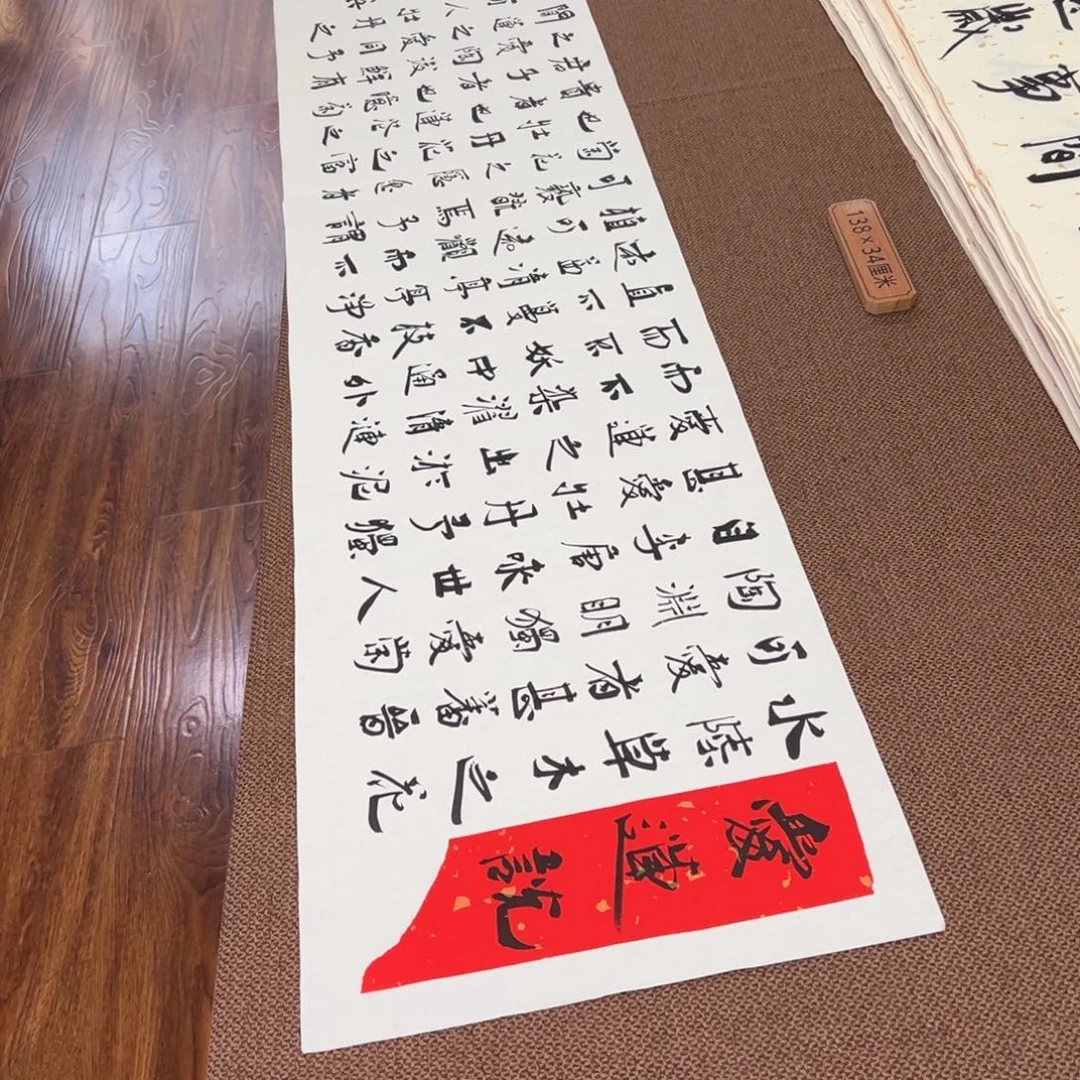 愛蓮說
水陸草木之花
可愛者甚蕃晉
陶淵明獨愛菊
自李唐來世人
甚愛牡丹予獨
愛蓮之出淤泥
而不染濯清漣
而不妖中通外
直不蔓不枝香
遠益清亭亭淨
植可遠觀而不
可褻翫焉予謂
菊花之隱逸者
也牡丹花之富
貴者也蓮花之
君子者也噫菊
之愛陶後鮮有
聞蓮之愛同予
何人牡丹之
138×34厘米
歲事間